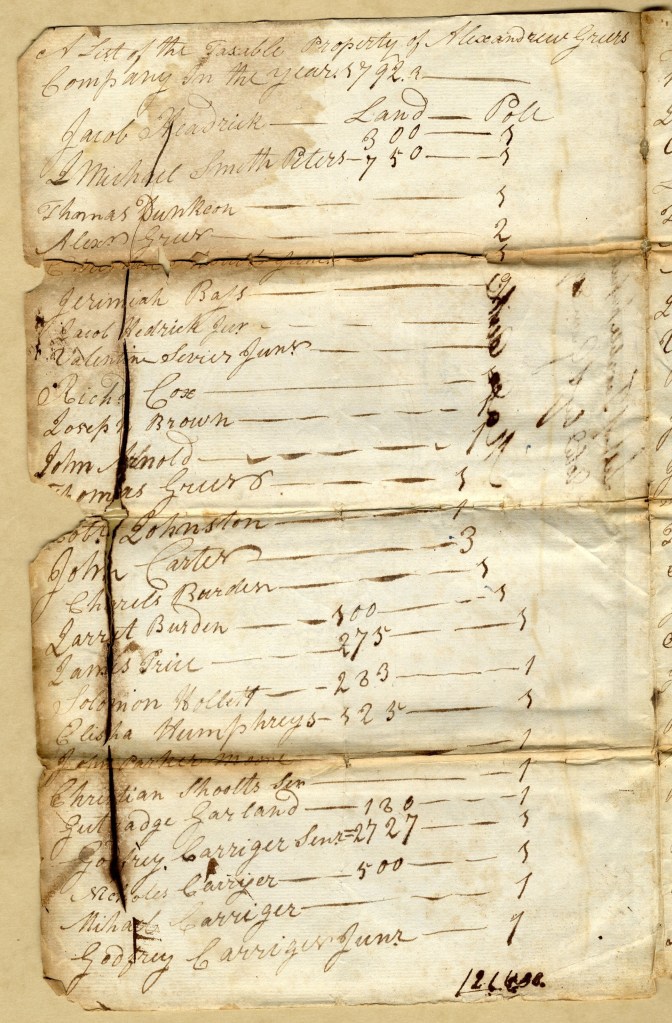 A List of the Taxable Property of Alexandrew Greers
Company In the year 1792.
Land Poll
Jacob Headrick — 300 — 1
Michael Smith Peters — 750 — 1
Thomas Dunkeon — 1
Alexr Greer — 2
Junr 1
Jerimiah Bass —
Jacob Hedrick Jur —
Valentine Sevier Junr —
Richd Cox —
Joseph Brown — 1
John Arnold — 1
Thomas Greer — 1
Robt Johnston — 1
John Carter — 3
Charels Burden — 1
Jarret Burden — 100 — 1
James Price — 275 — 1
Solomon Hollett — 233 — 1
Elisha Humphreys — 125 — 1
John Parker Moore — 1
Christian Shoolts Sen — 1
Gutradge Garland — 180 — 1
Godfrey Carriger Senr = 2727 — 1
Nicholes Carriger — 500 — 1
Mihael Carriger — 1
Godfrey Carriger Junr — 1